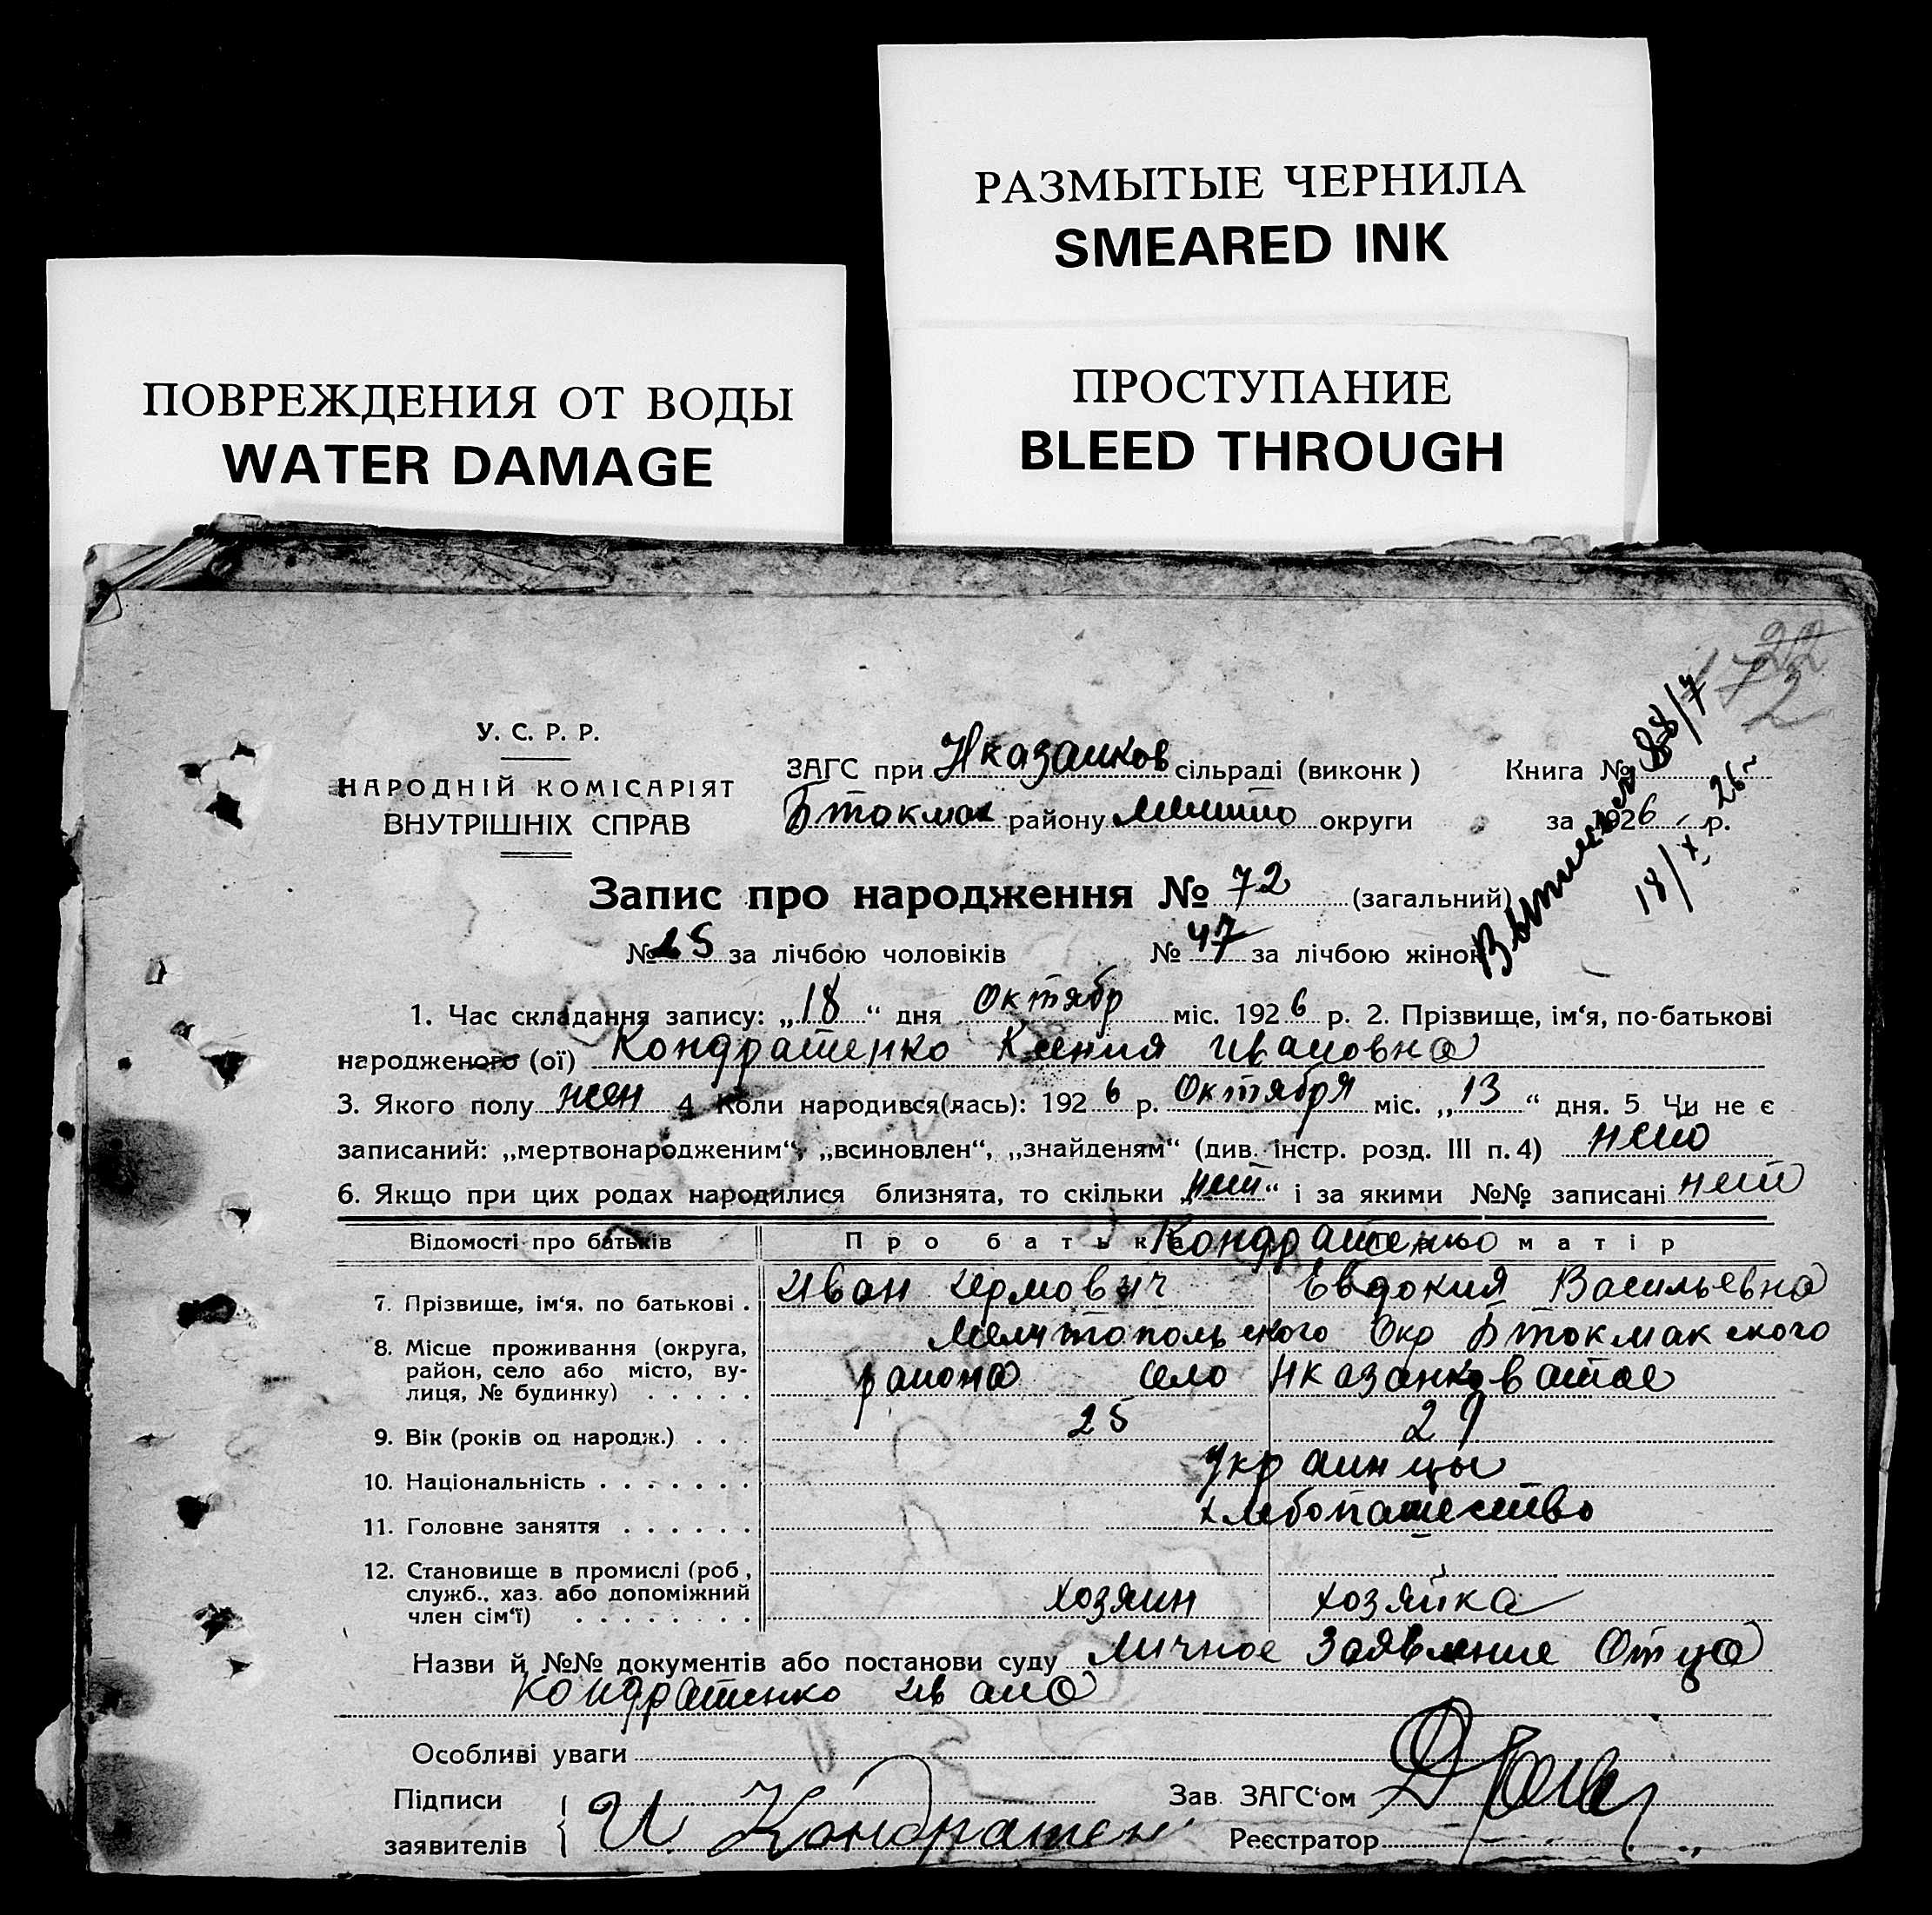 РАЗМЫТЫЕ ЧЕРНИЛА
SMEARED INK
ПОВРЕЖДЕНИЯ ОТ ВОДЫ
WATER DAMAGE
ПРОСТУПАНИЕ
BLEED THROUGH
22
172
2
У. С. Р. Р.
НАРОДНІЙ КОМІСАРІЯТ
ВНУТРІШНІХ СПРАВ
ЗАГС при Нказанков сільраді (виконк) Книга №
Бтокмак району Мелито округи за 1926 р.
88/7
18/X 26
Запис про народження № 72 (загальний)
№ 25 за лічбою чоловіків № 47 за лічбою жінок
1. Час складання запису: „18“ дня Октябр міс. 1926 р. 2. Прізвище, ім‘я, по-батькові
народженого (ої) Кондратенко Ксения Ивановна
3. Якого полу жен 4 Коли народився(лась): 1926 р. Октября міс. „13“ дня. 5 Чи не є
записаний: „мертвонародженим“, „всиновлен“, „знайденям“ (див. інстр. розд. III п. 4) нет
6. Якщо при цих родах народилися близнята, то скільки „нет“ і за якими №№ записані нет
Відомості про батьків Про батька Кондратенко матір
7. Прізвище, ім‘я, по батькові . Иван Евдокия Васильевна
8. Місце проживання (округа, Мелитопольского Окр Бтокмакского
район, село або місто, ву- района село Нказанковатое
лиця, № будинку) . . . . .
9. Вік (років од народж.) . . . 25 29
10. Національність . . . . . . . Украинцы
11. Головне заняття . . . . . . хлебопашество
12. Становище в промислі (роб,
служб., хаз. або допоміжний
член сім‘ї) . . . . . . . . хозяин хозяйка
Назви й №№ документів або постанови суду личное Заявление Отца
Кондратенко Ивана
Особливі уваги
Підписи
Зав. ЗАГС‘ом
заявителів И Кондратен Реєстратор